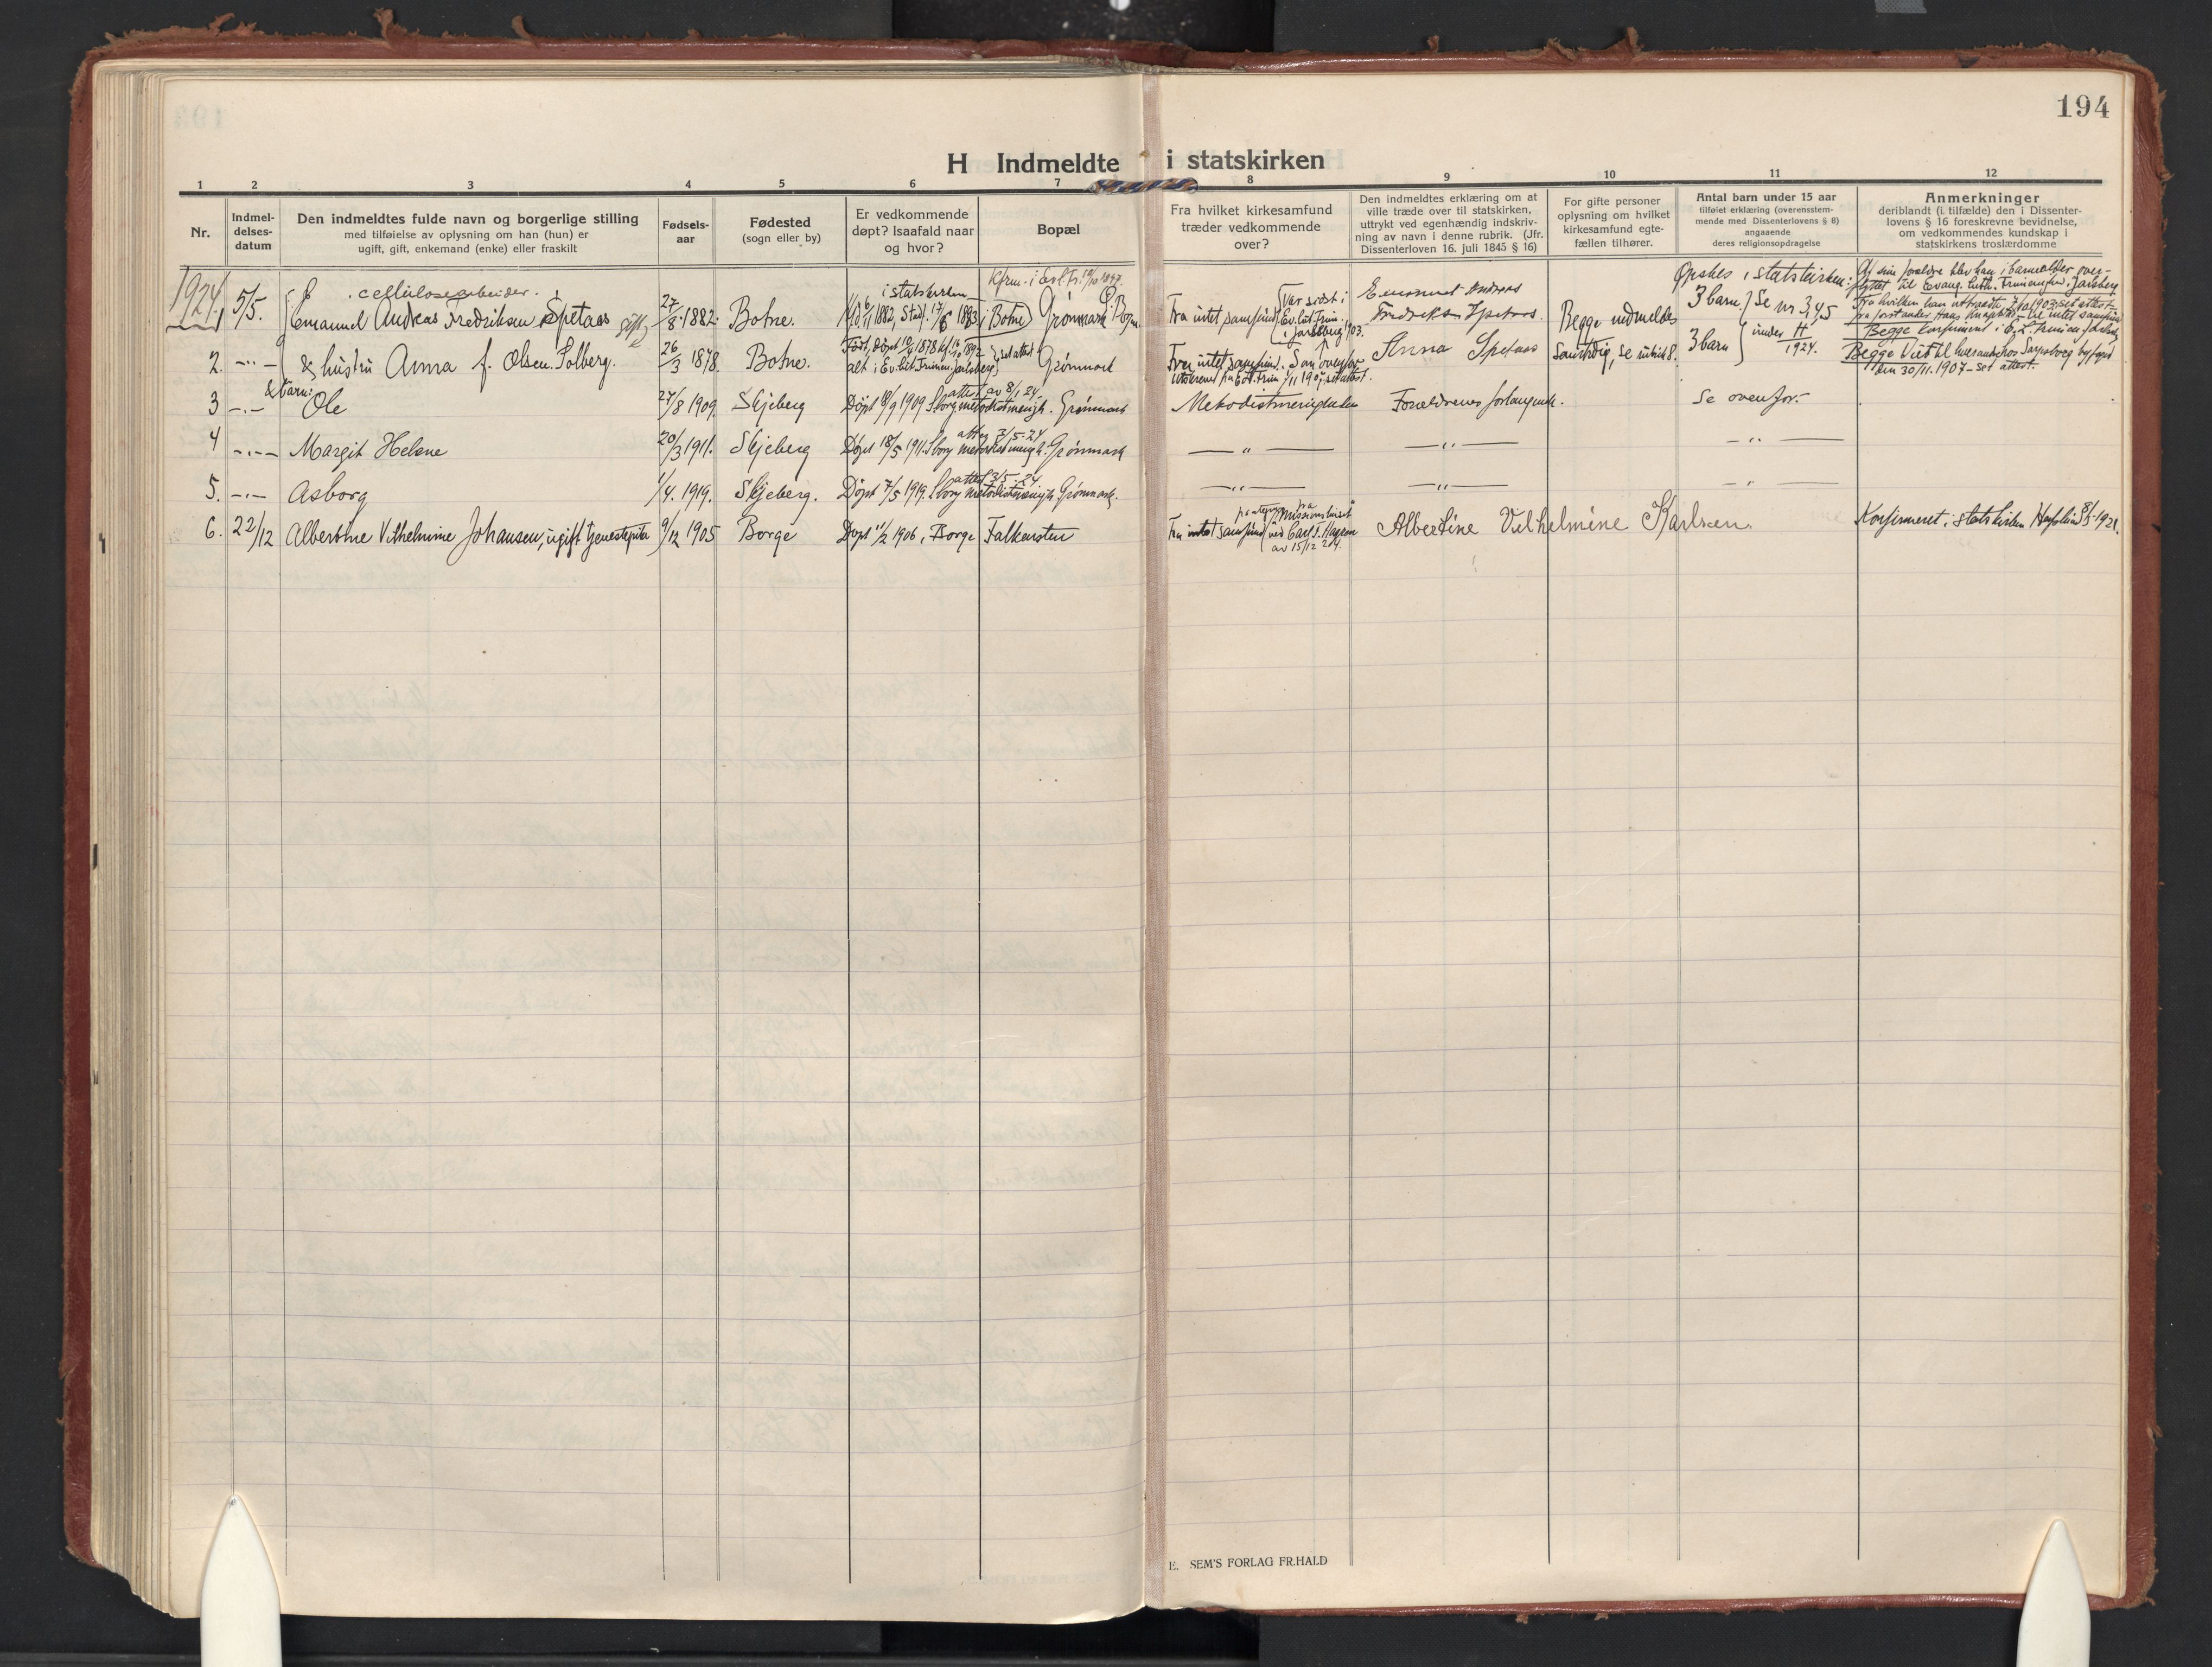 194
H Indmeldte i statskirken
1 2 3 4 5 6 7 8 9 10 11 12
Nr.
Indmel-
delses-
datum
Den indmeldtes fulde navn og borgerlige stilling
med tilføielse av oplysning om han (hun) er
ugift, gift, enkemand (enke) eller fraskilt
Fødsels-
aar
Fødested
(sogn eller by)
Er vedkommende
døpt? Isaafald naar
og hvor?
Bopæl
Fra hvilket kirkesamfund
træder vedkommende
over?
Den indmeldtes erklæring om at
ville træde over til statskirken,
uttrykt ved egenhændig indskriv-
ning av navn i denne rubrik. (Jfr.
Dissenterloven 16. juli 1845 § 16)
For gifte personer
oplysning om hvilket
kirkesamfund egte-
fællen tilhører.
Antal barn under 15 aar
tilføiet erklæring (overensstem-
mende med Dissenterlovens § 8)
angaaende
deres religionsopdragelse
Anmerkninger
deriblandt (i tilfælde) den i Dissenter-
lovens § 16 foreskrevne bevidnelse,
om vedkommendes kundskap i
statskirkens troslærdomme
1924
5/5.
cellulosearbeider.
Emanuel Andreas Fredriksen Spetaas gift
27/8 1882.
Botne.
i statskirken
1882, Stad. 17/6 1883 i Botne
Grønmark
Fra intet samfund
Var sidst i
Ev. lut. Frim.
i Jarlsberg 1903.
Emanuel Andreas
Fredriksen Spetaas.
Begge indmeldes
samtidig, se rubrik 8.
Ønskes i statskirken:
3 barn Se nr 3,4,5
under H
1924.
Af sine forældre blev han i barnealder over-
flyttet til Evang. luth. Frimenigh. i Jarlsberg
fra hvilken han uttraadte 7/12 1903; set attest
fra forstander Hans
til intet samfund
Begge konfirmert i
Begge Viet til hverandre hos Sarpsborg byfogd
den 30/11. 1907 - set attest.
2. -"- & hustru Anna f. Olsen Solberg.
26/3 1878.
Botne.
Født, døpt 1878
alt i Ev. lut. Frimen. Jarlsberg
set attest
Grønmark
Fra intet samfund. Som ovenfor
Anna Spetaas
3 barn
& barn:
3 -"- Ole
27/8 1909
Skjeberg
attest av 8/1 24
Døpt 18/9 1909 Sborg metodistmenigh.
Grønmark
Metodistmenigheten
Forældrenes forlangende.
Se ovenfor.-
4 -"- Margit Helene
20/3 1911.
Skjeberg
attest 7/5-24
Døpt 18/5 1911. Sborg metodistmenigh.
Grønmark
-"-
-"-
-"-
5. -"- Asborg
1/4. 1919.
Skjeberg.
attest 3/5-24
Døpt 7/5 1919. Sborg metodistmenigh.
Grønmark.
-"-
-"-
-"-
6. 22/12 Albertine Vilhelmine Johansen, ugift tjenestepike
9/12 1905
Borge
Døpt 11/2 1906, i Borge
Falkensten
Fra intet samfund
fra
Missionshuset
ved Carl F. Hagen
av 15/12 24.
Albertine Vilhelmine Karlsen
Konfirmeret i statskirken 1921.
E. SEM'S FORLAG FR.HALD